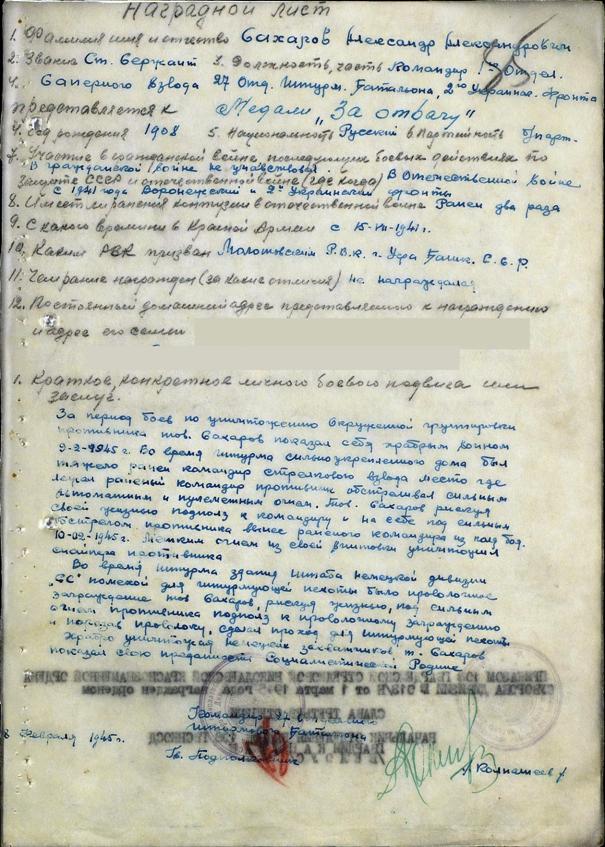 Наградной лист
35
1. Фамилия имя и отчество Сахаров Александр Александрович
2. Звание Ст. Сержант 3. Должность, часть Командир Отдел.
4. Саперного взвода 27 Отд. Штурм. Батальона, 2го Украинск. Фронта
представляется к Медали „За отвагу"
4. Год рождения 1908 5. Национальность Русский 6 Партийность б/парт.
7. Участие в гражданской войне, последующих боевых действиях по
В гражданской войне не участвовал.
защите СССР и отечественной войне (где когда) В Отечественной войне
с 1941 года Воронежский 2й Украинский фронты
8. Имеет ли ранения контузии в отечественной войне Ранен два раза
9. С какого времени в Красной Армии с 15-VII-1941г.
10. Каким РВК призван Молотовским Р.В.К. г. Уфа Башк.
11. Чем ранее награжден (за какие отличия) не награждался
12. Постоянный домашний адрес представляемого к награждению
и адрес его семьи
1. Краткое, конкретное личного боевого подвига или
заслуг.
За период боев по уничтожению окруженной группировки
противника тов. Сахаров показал себя храбрым воином
9-2-1945г. Во время штурма сильноукрепленного дома был
тяжело ранен командир стрелкового взвода место где
лежал раненый командир противник обстреливал сильным
автоматным и пулеметным огнем. Тов. Сахаров рискуя
своей жизнью подполз к командиру и на себе под сильным
обстрелом противника вынес раненого командира из поля боя.
10-02-1945г. Метким огнем из своей винтовки уничтожил
снайпера противника
Во время штурма здания штаба немецкой дивизии
„СС" помехой для штурмующей пехоты было проволочное
заграждение тов Сахаров, рискуя жизнью, под сильным
огнем противника подполз к проволочному заграждению
и порезав проволоку, сделал проход для штурмующей пехоты
Храбро уничтожая немецких захватчиков т. Сахаров
показал свою преданность Социалистической Родине.
Командир 27
Штурмового Батальона
Февраля 1945г.
Гв. Подполковник